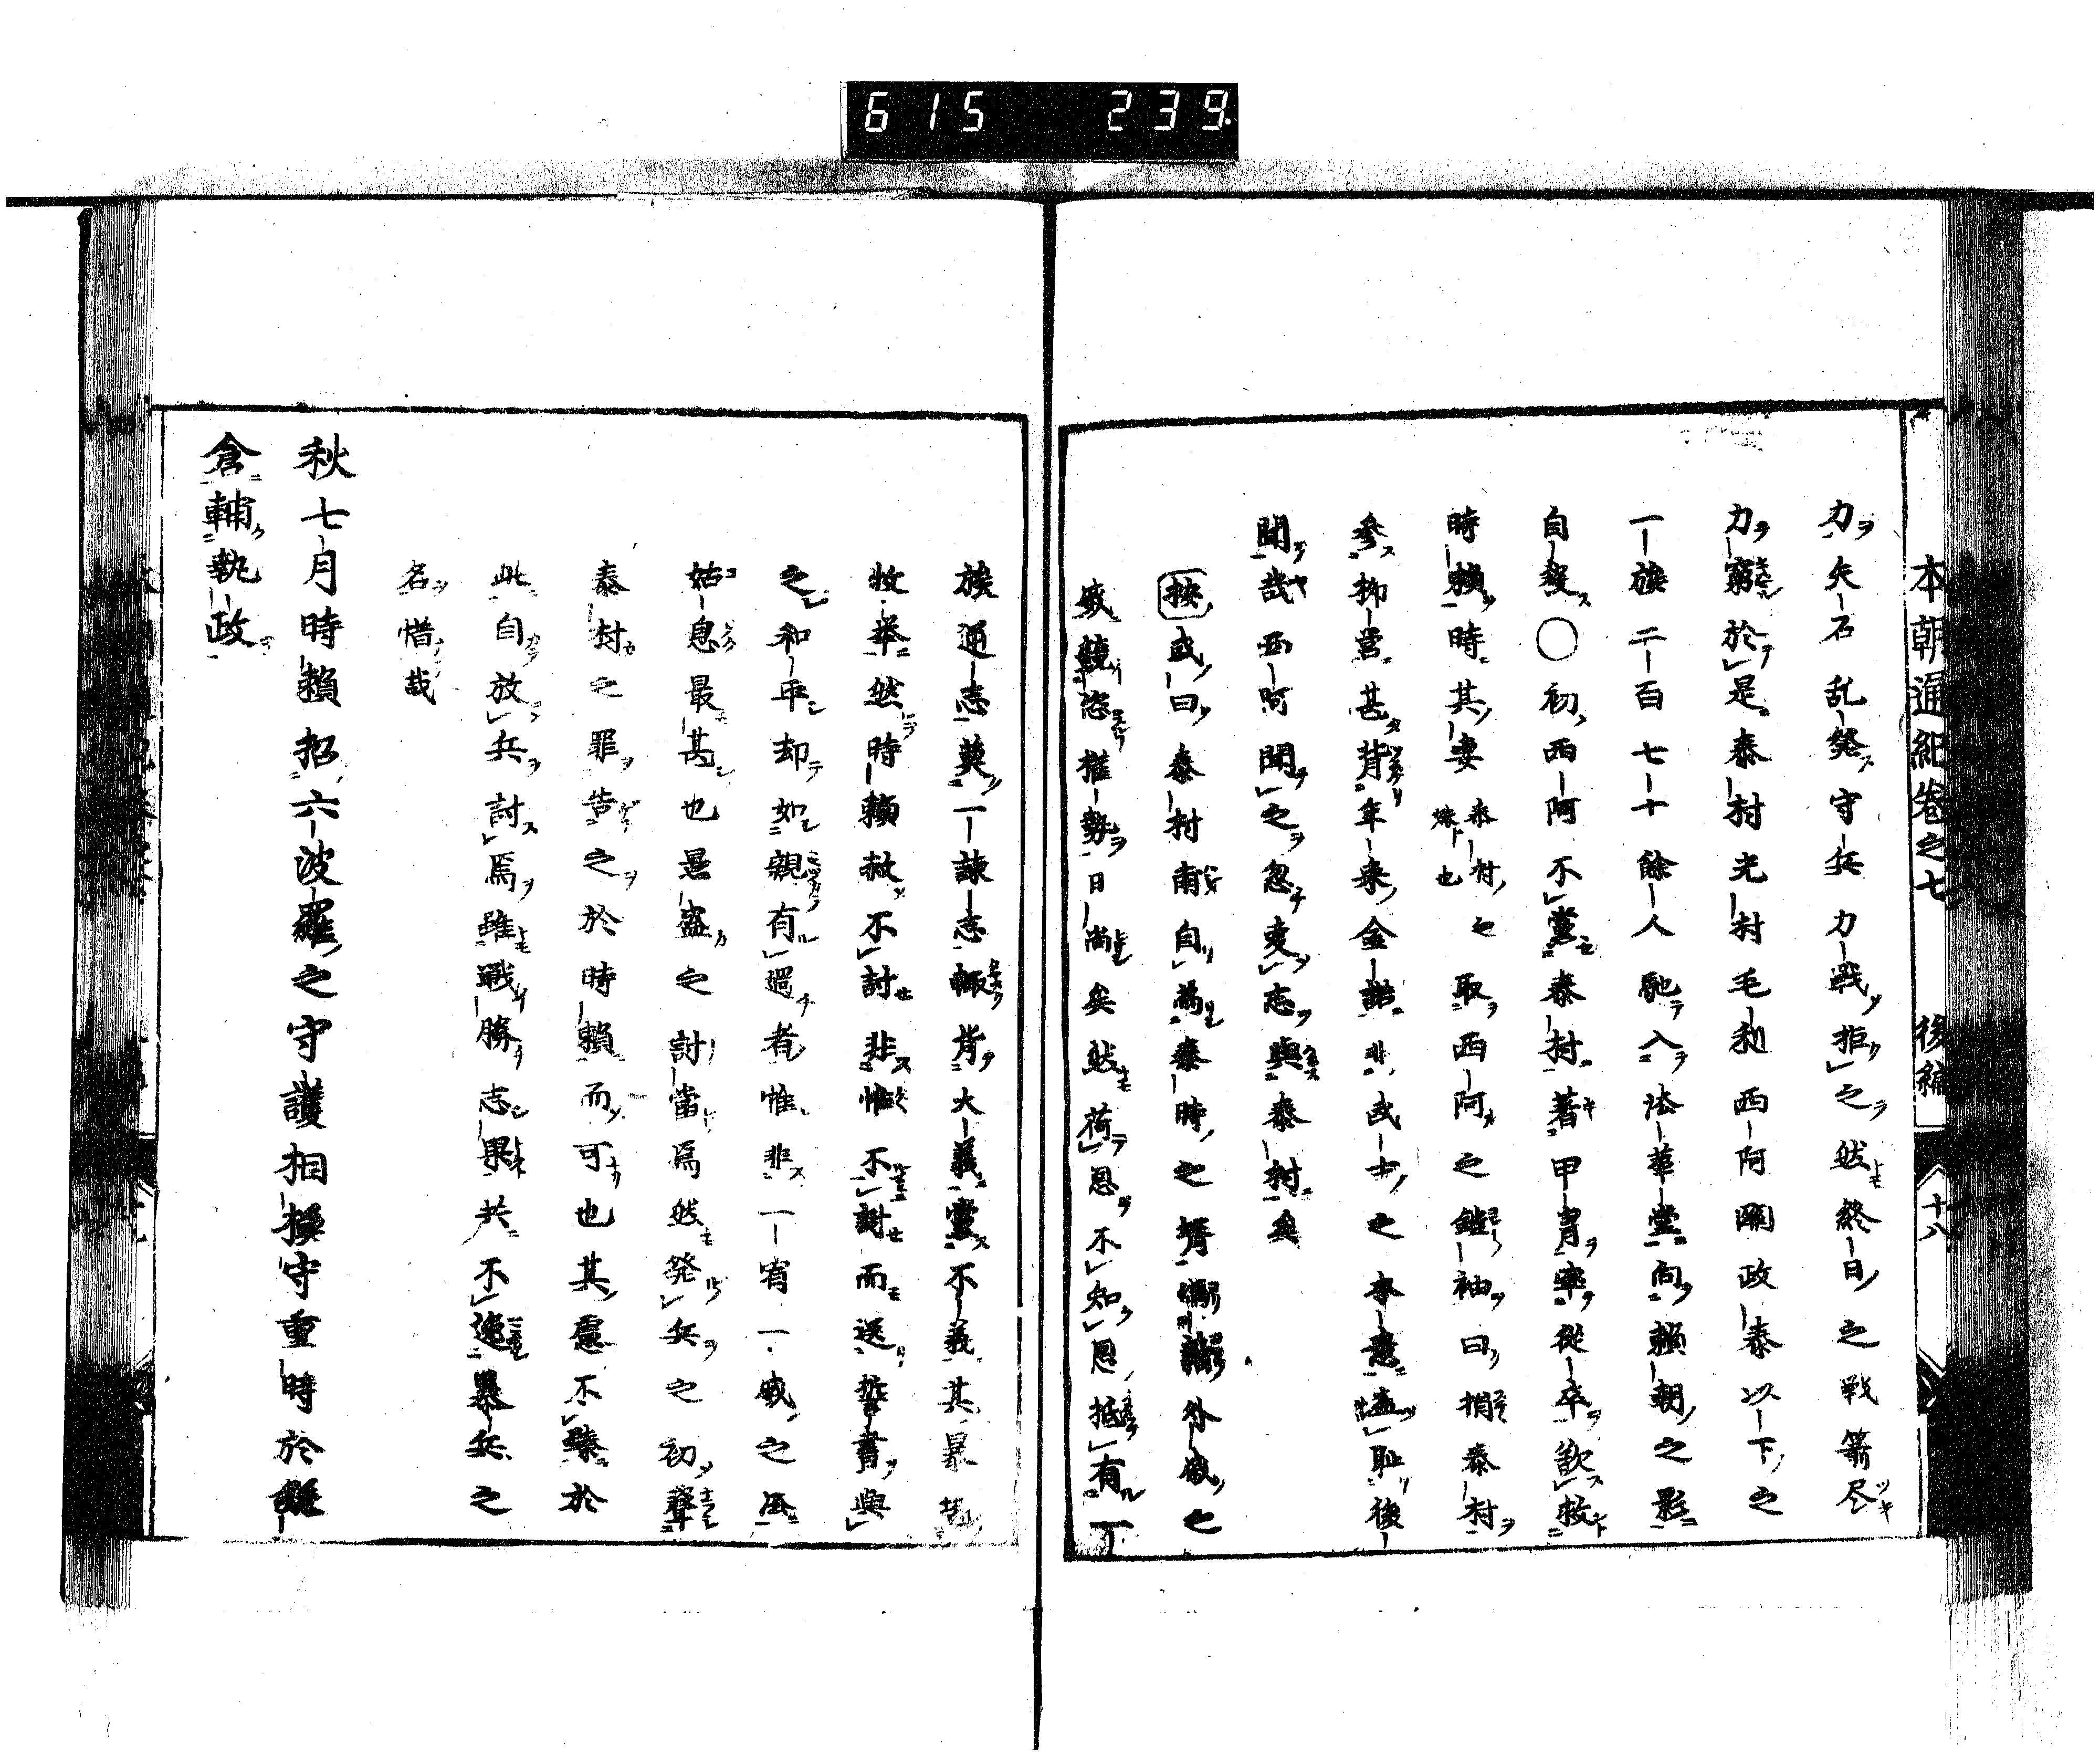 615 239.
本朝通紀卷之七 後編 十八
力矢石乱發守兵力戰拒之然終日之戦箭尽
力窮於是泰村光村毛利西阿關政泰以下之
一族二百七十餘人馳入法華堂向賴朝之影
自殺〇初西阿不黨泰村著甲冑率從卒欲救
時賴時其妻泰村妹也取西阿之鎧袖曰捐泰村
参抑営甚背年来金諾非武士之本意盍恥後
聞哉西阿聞之忽変志與泰村矣
按或曰泰村甫自為泰時之壻外戚也
威競恣權勢日尚矣然荷恩不知恩抵有一
族逆志莫一諫志輙背大義黨不義其暴
牧挙然時賴赦不討非惟不討而送誓書與
之和平却如親有遲者惟非一宥一威之
姑息最甚也是盛之討當焉然発兵之初聲
泰村之罪告之於時賴而可也其慮不臻於
此自放兵討焉雖戰勝志果共不逸暴兵之
名惜哉
秋七月時賴招六波羅之守護相摸守重時於鎌
倉輔執政